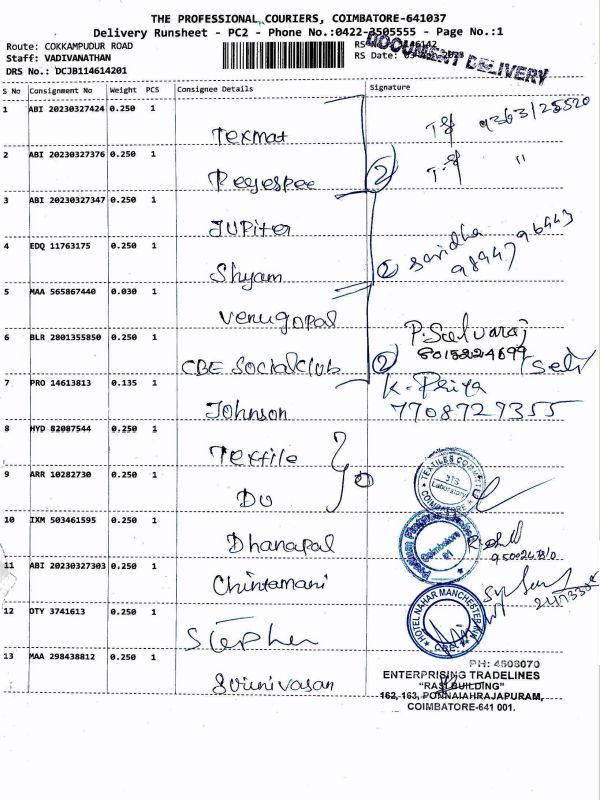 THE PROFESSIONAL COURIERS, COIMBATORE-641037
Delivery Runsheet - PC2 - Phone No.:0422-3505555 - Page No.:1
Route: COKKAMPUDUR ROAD
Staff: VADIVANATHAN
DRS No.: DCJB114614201
RS
RS Date:
DOCUMENT DELIVERY
S No Consignment No Weight PCS Consignee Details Signature
1 ABI 20230327424 0.250 1 Texmat
2 ABI 20230327376 0.250 1 "
3 ABI 20230327347 0.250 1 Jupiter
4 EDQ 11763175 0.250 1 Shyam
5 MAA 565867440 0.030 1 Venugopal
6 BLR 2801355850 0.250 1 CBE Socialclub P. Selvaraj
7 PRO 14613813 0.135 1 Johnson K. Priya
7708727355
8 HYD 82087544 0.250 1 Textile
9 ARR 10282730 0.250 1 Do
10 IXM 503461595 0.250 1 Dhanapal
11 ABI 20230327303 0.250 1 Chintamani
12 OTY 3741613 0.250 1 Stephen
13 MAA 298438812 0.250 1 Srinivasan
TEXTILES COMMITTEE
Laboratory
COIMBATORE
Coimbatore
HOTEL NAHAR MANCHESTER
CBE
PH: 4503070
ENTERPRISING TRADELINES
"RASI BUILDING"
162, 163, PONNAIAHRAJAPURAM,
COIMBATORE-641 001.